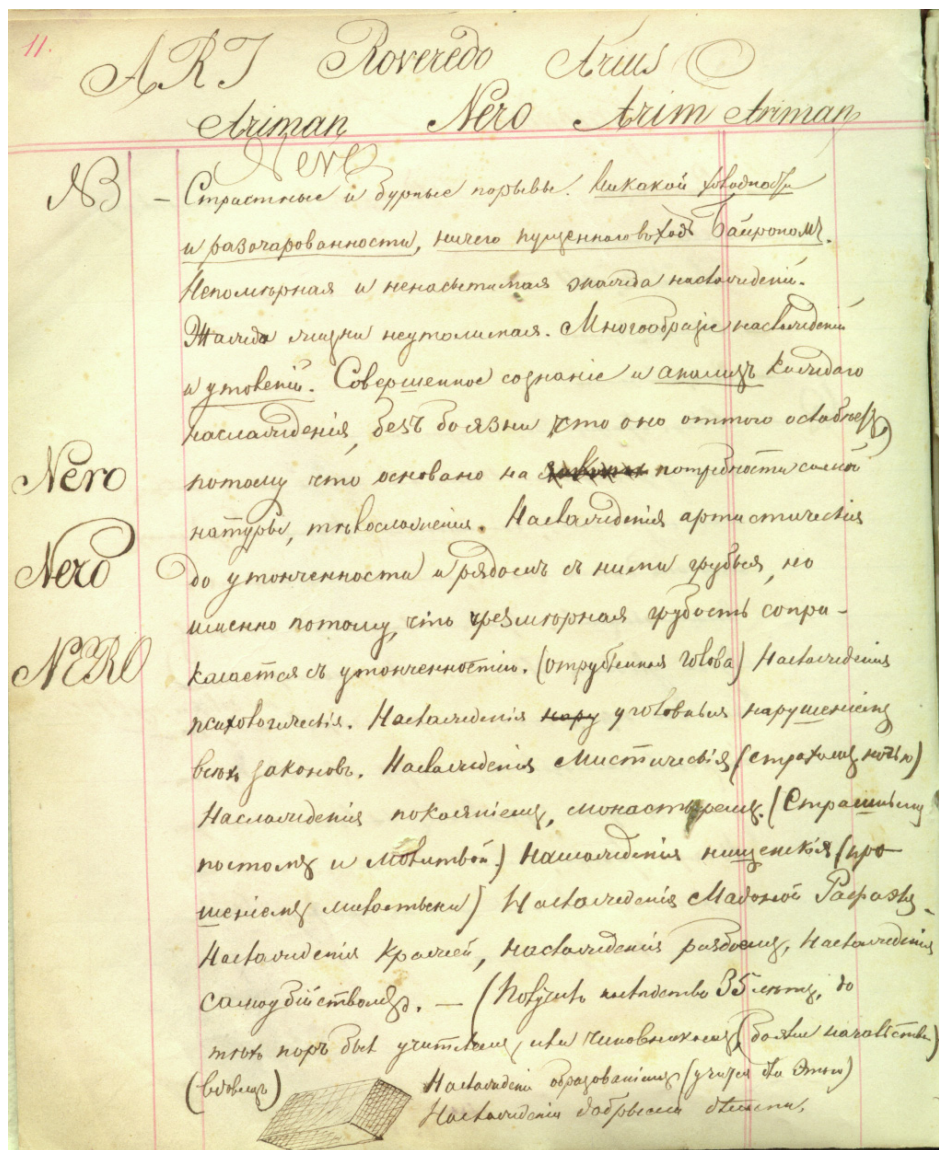 11.
ART Roveredo Arius
Ariman Nero Arim Ariman
Nero
NB — Страстные и бурные порывы. Никакой холодности
и разочарованности, ничего пущеннаго въ ходъ Байрономъ.
Непомѣрная и ненасытимая жажда наслажденій.
Жажда жизни неутолимая. Многообразіе наслажденій
и утоленій. Совершенное сознаніе и анализъ каждаго
наслажденія, безъ боязни что оно оттого ослабнетъ,
Nero потому что основано на потребности самой
натуры, тѣлосложенія. Наслажденія артистическія
Nero до утонченности и рядомъ съ ними грубыя, но
именно потому, что чрезмѣрная грубость сопри-
NERO касается съ утонченностію. (отрубленная голова) Наслажденія
психологическія. Наслажденія нару уголовныя нарушеніемъ
всѣхъ законовъ. Наслажденія мистическія (страхомъ, ночью)
Наслажденія покаяніемъ, монастыремъ. (Страшнымъ
постомъ и молитвой.) Наслажденія нищенскія (про-
шеніемъ милостыни) Наслажденія Мадоной Рафаэля.
Наслажденія кражей, наслажденія разбоемъ, наслажденія
самоубійствомъ. — (Получилъ наслѣдство 35 лѣтъ, до
тѣхъ поръ былъ учителемъ, или чиновникомъ, (боялся начальства)
(вдовецъ) Наслажденіе образованіемъ (учится для этого)
Наслажденіе добрыми дѣлами.